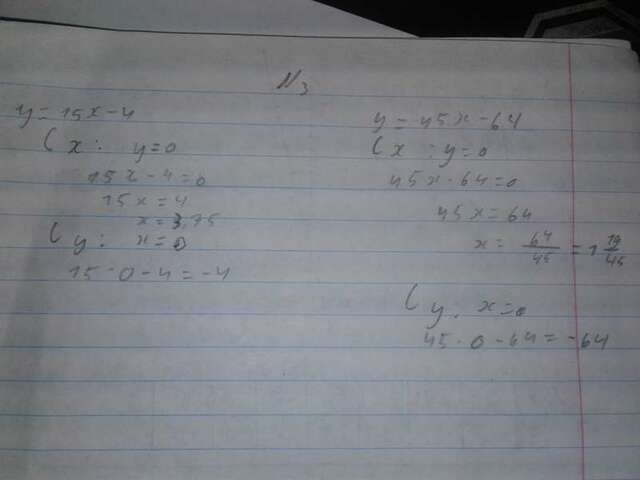 N3
y = 15x - 4
С x: y=0
15x - 4 = 0
15x = 4
x = 3,75
С y: x = 0
15 · 0 - 4 = -4
y = 45x - 64
С x : y=0
45x - 64=0
45x = 64
x = 64/45 = 1 19/45
С y: x=0
45 · 0 - 64 = -64